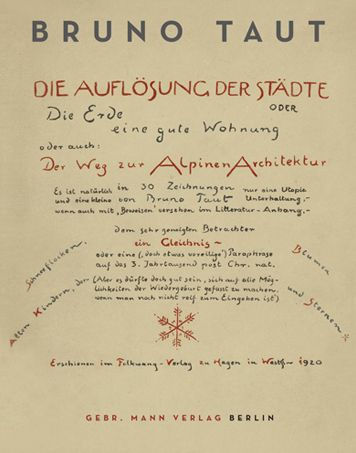 BRUNO TAUT
DIE AUFLÖSUNG DER STÄDTE
ODER
Die Erde
eine gute Wohnung
oder auch:
Der Weg zur Alpinen Architektur
Es ist natürlich in 30 Zeichnungen nur eine Utopie
und eine kleine von Bruno Taut Unterhaltung,-
wenn auch mit „Beweisen" versehen im Litteratur-Anhang,-
dem sehr geneigten Betrachter
ein Gleichnis ~
oder eine (doch etwas voreilige) Paraphrase
auf das 3. Jahrtausend post Chr. nat.
(Aber es dürfte doch gut sein, sich auf alle Mög-
lichkeiten der Wiedergeburt gefasst zu machen,
wenn man noch nicht reif zum Eingehen ist)
Allen Kindern, der Schneeflocken,
Blumen und Sternen
Erschienen im Folkwang-Verlag zu Hagen in Westf. ~ 1920
GEBR. MANN VERLAG BERLIN